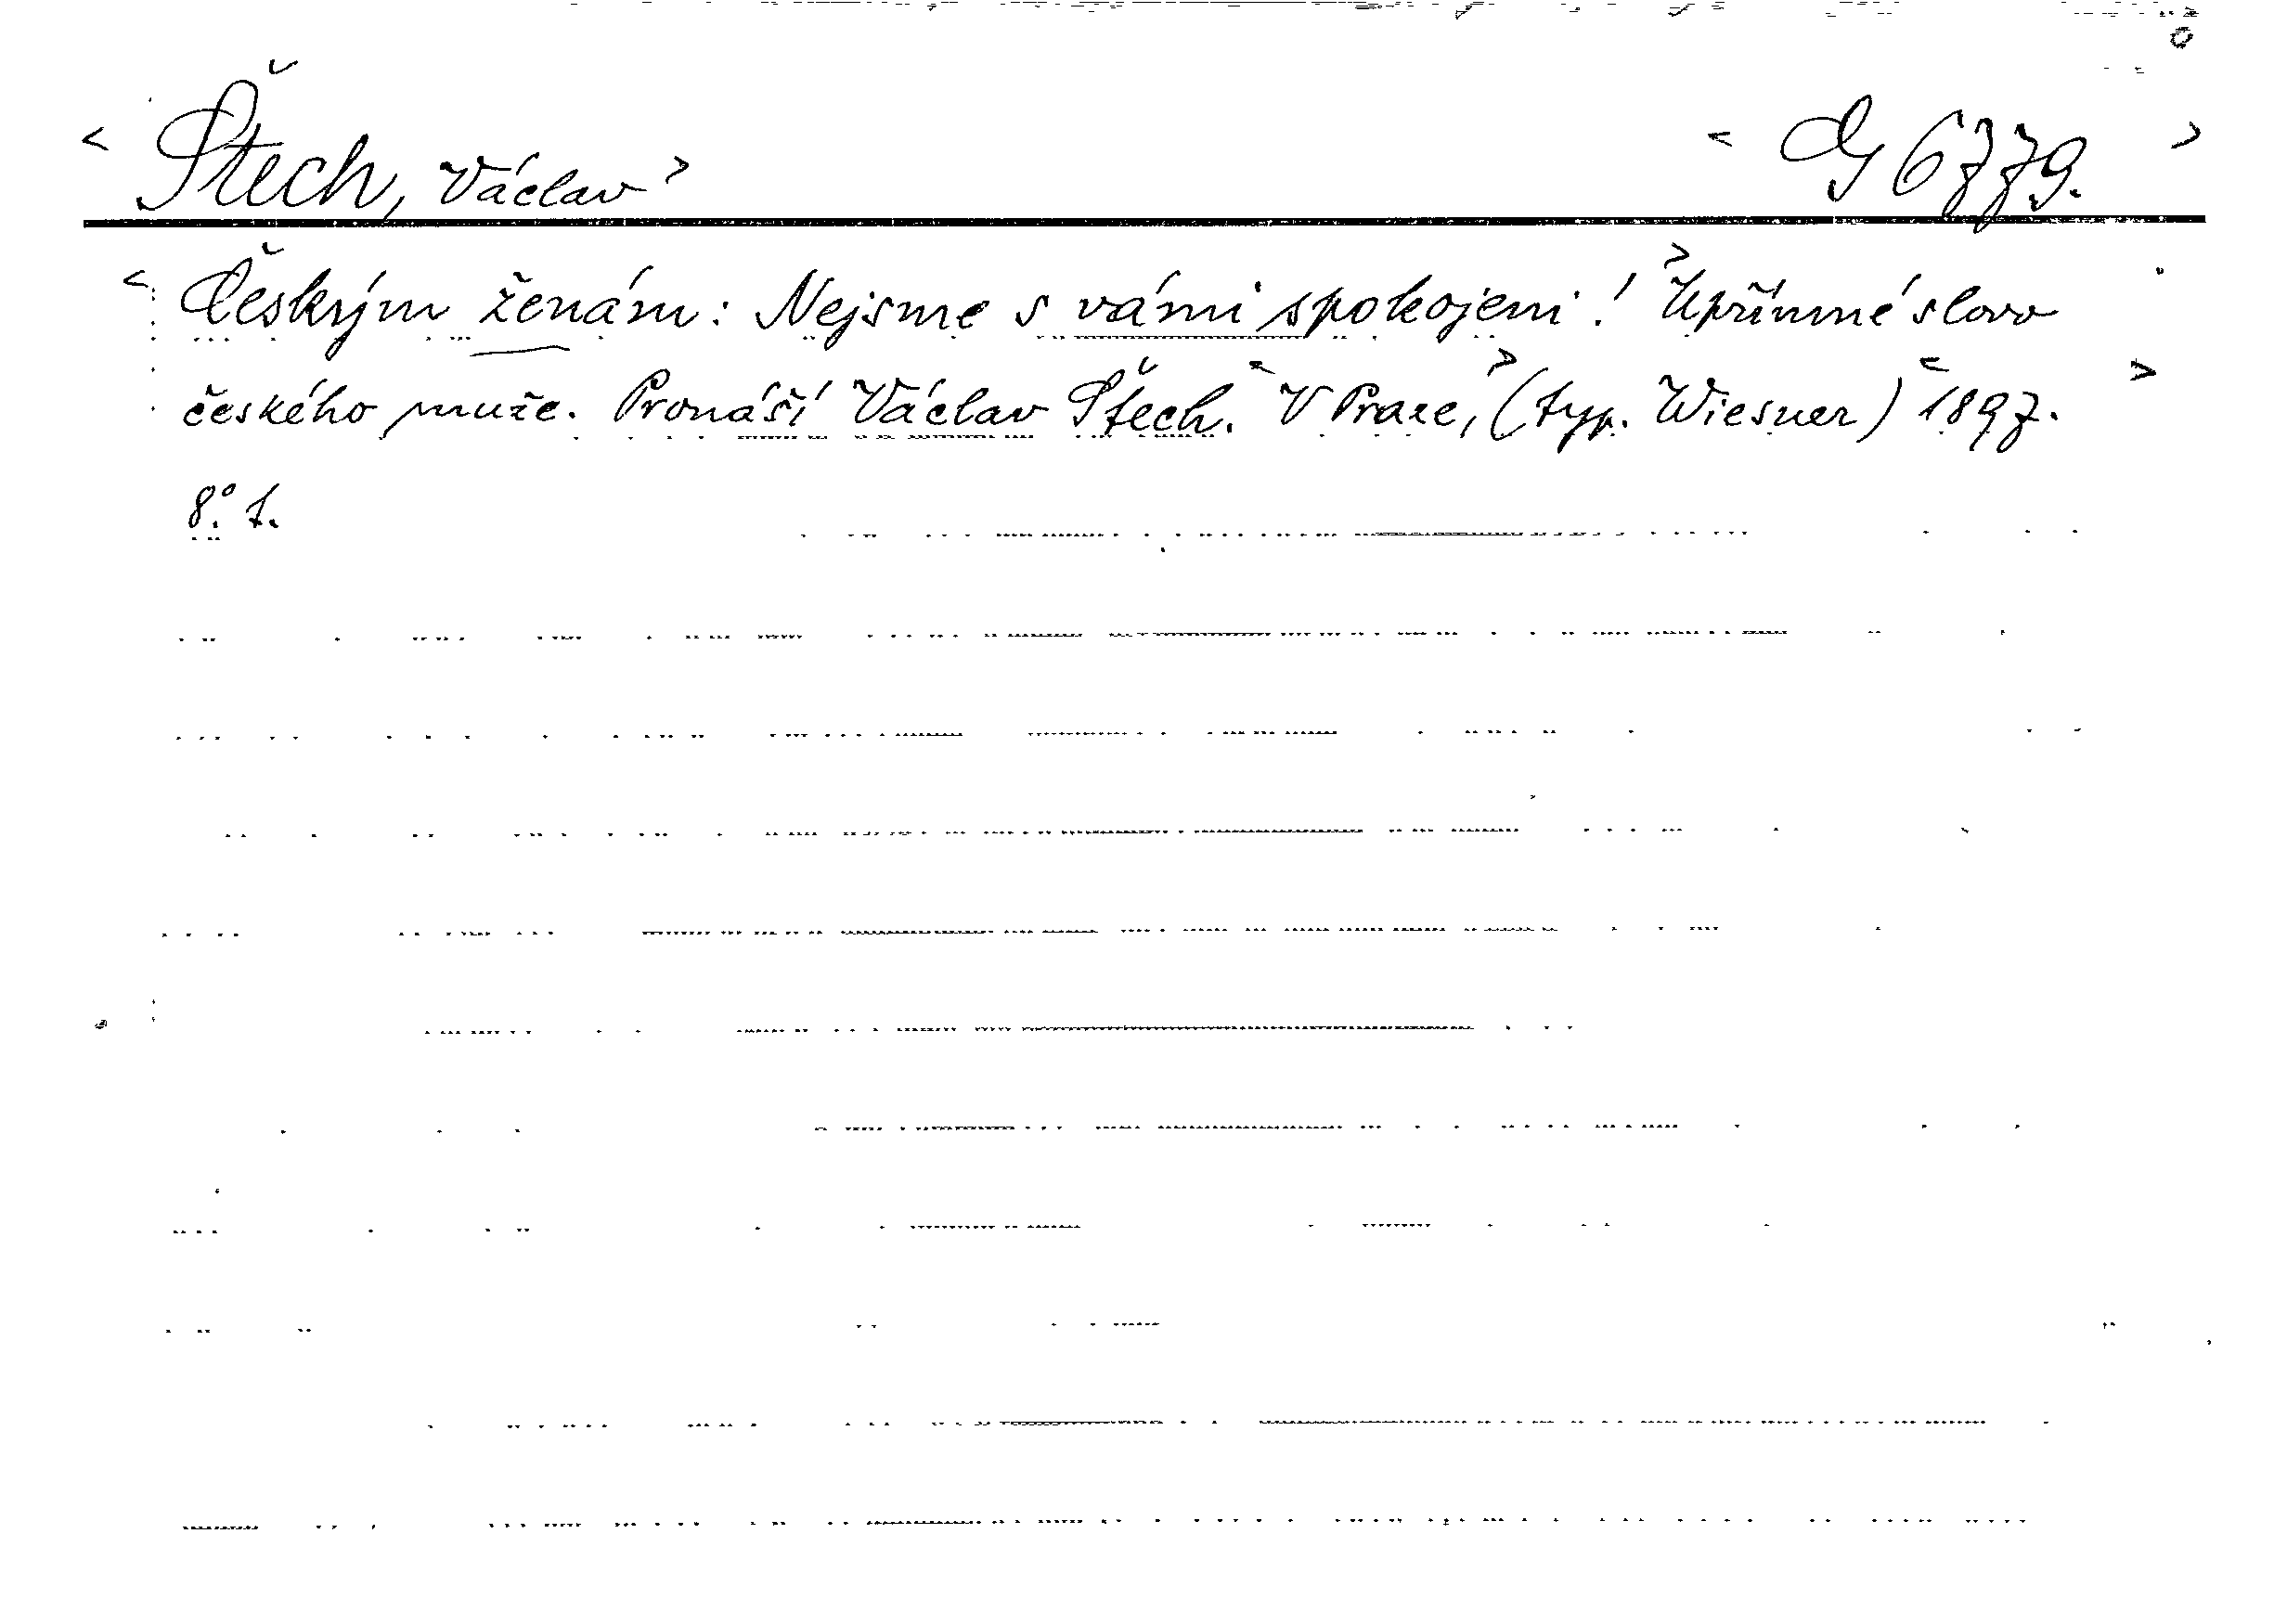 < Štech, Václav > < G 6779. >
< Českým ženám: Nejsme s vámi spokojeni! > Upřímné slovo
českého muže. Pronáší Václav Štech. < V Praze, > (typ. Wiesner) < 1897. >
8.° 1.